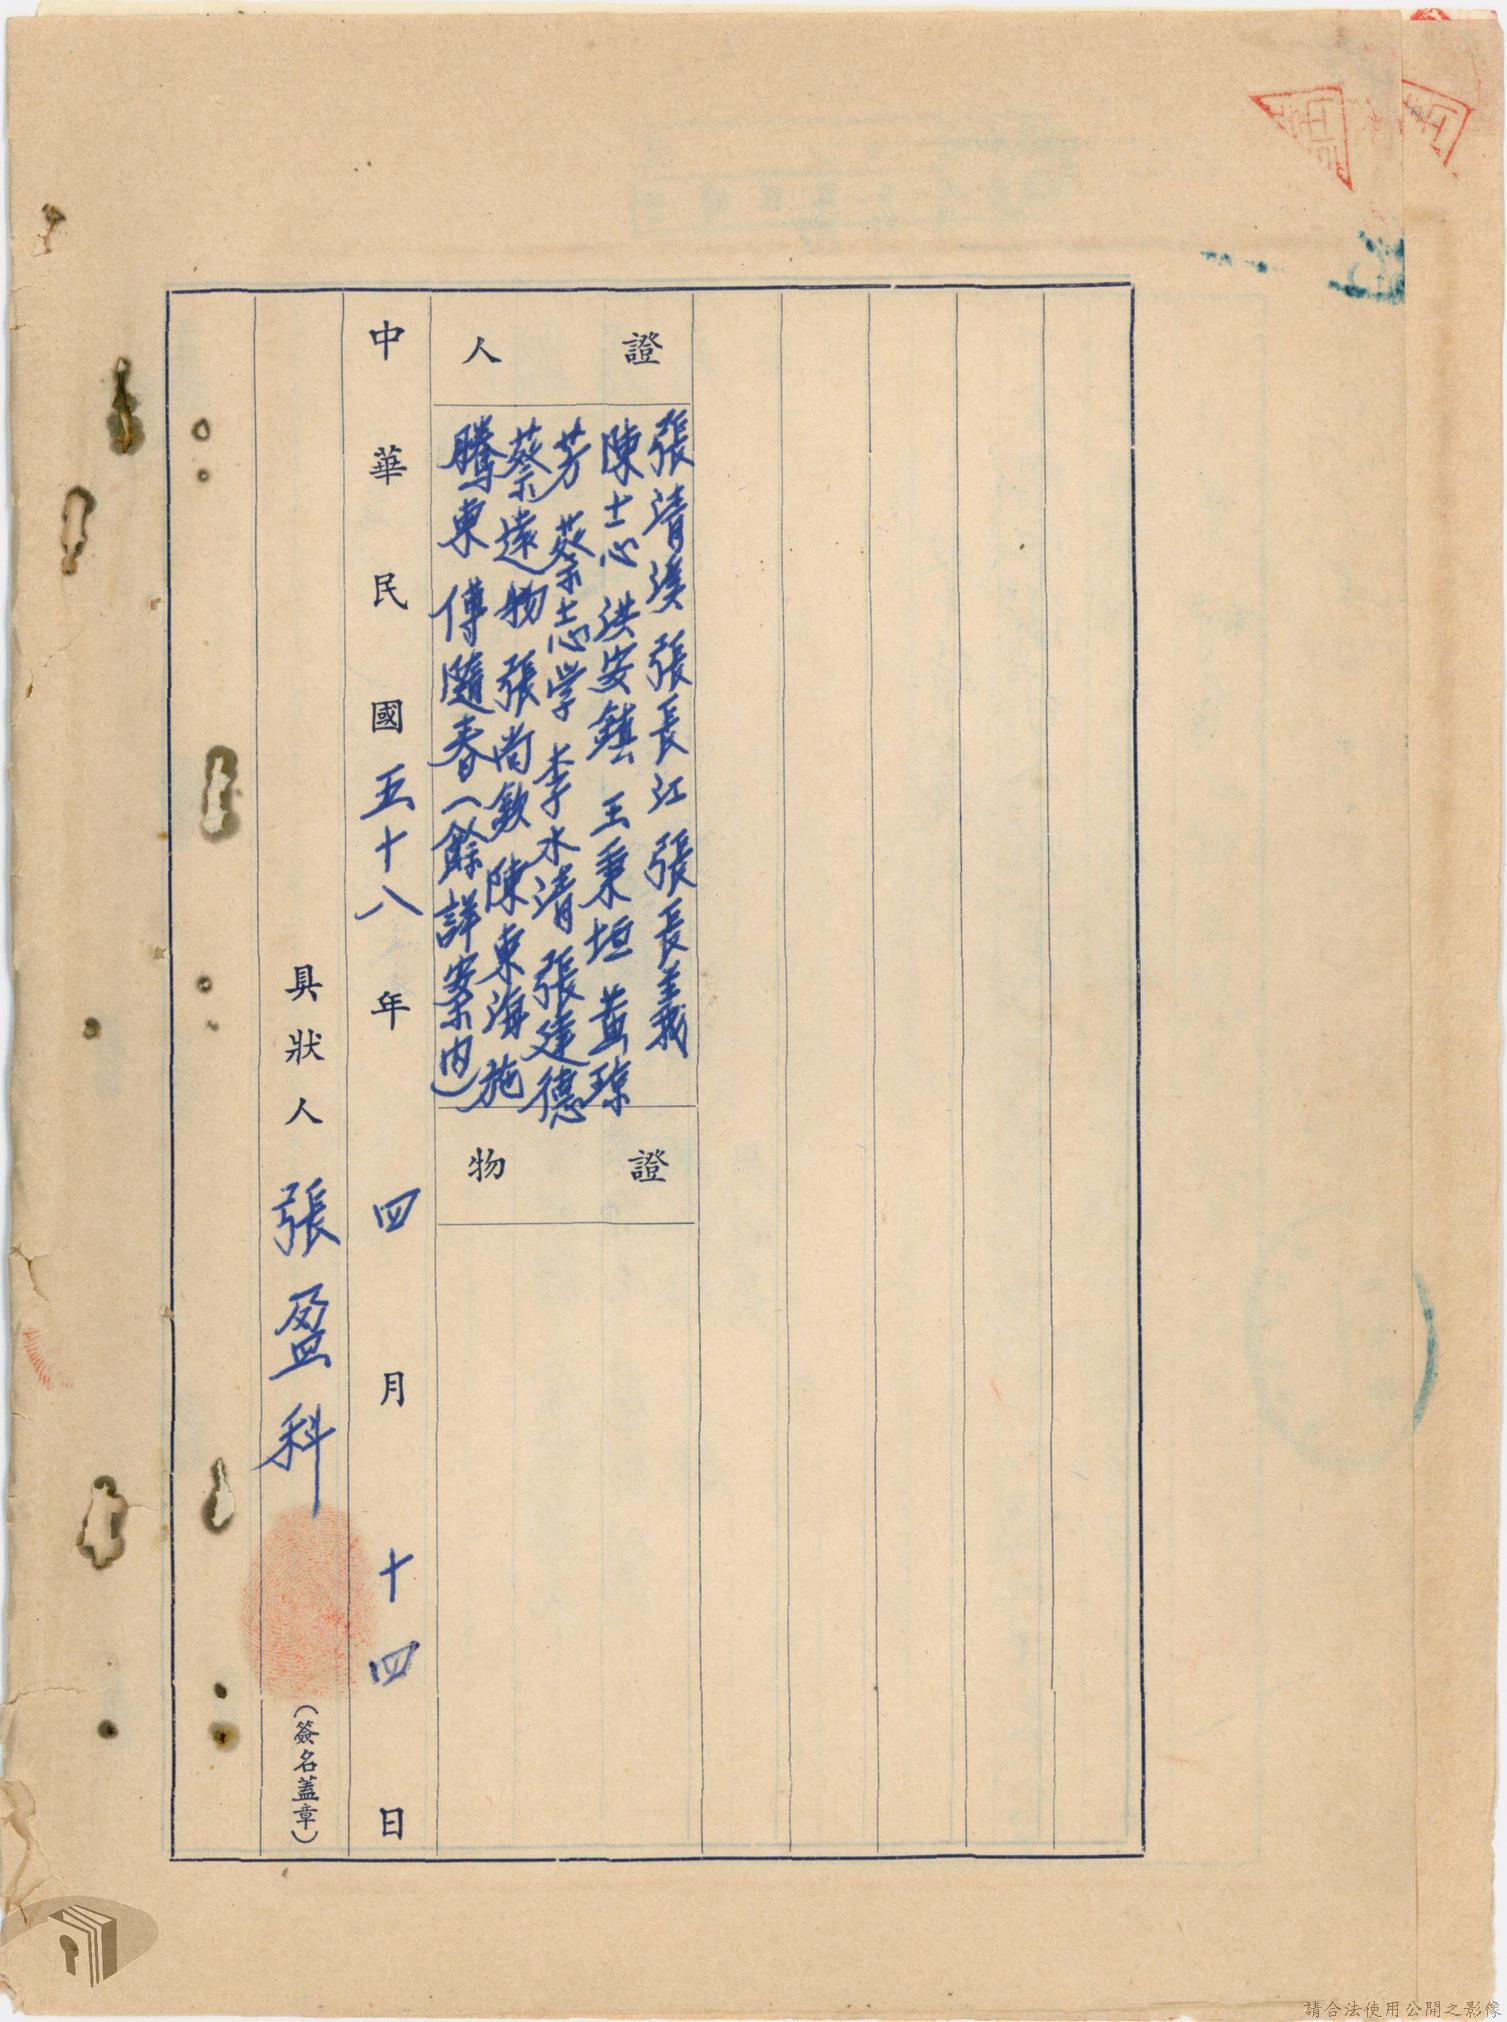 證人
張清溪 張長江 張長義
陳士心 洪安鎮 王秉垣 黃琼
芳 蔡志学 李水清 張建德
蔡遠物 張尚欽 陳東海 施
騰東 傅隨春（餘詳案內）
證物
中華民國五十八年四月十四日
具狀人 張盈科
（簽名蓋章）
請合法使用公開之影像